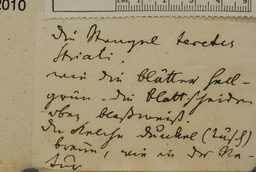 2010
Die Stengel teretes
striati.
wie die blätter hell-
grün. die blattscheiden
oben blaßweiß.
Die Kelche dunkel (Tusch)
braun, wie in der Na-
tur